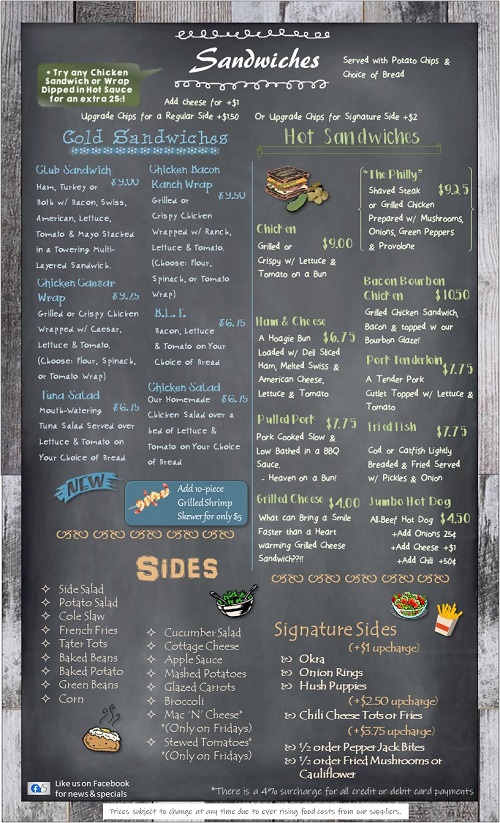 Sandwiches
Served with Potato Chips &
Choice of Bread
* Try any Chicken
Sandwich or Wrap
Dipped in Hot Sauce
for an extra 25¢!
Add cheese for +$1
Upgrade Chips for a Regular Side +$1.50
Or Upgrade Chips for Signature Side +$2
Cold Sandwiches
Club Sandwich
$9.00
Ham, Turkey or
Both w/ Bacon, Swiss,
American, Lettuce,
Tomato & Mayo Stacked
in a Towering Multi-
Layered Sandwich.
Chicken Caesar
Wrap $9.75
Grilled or Crispy Chicken
Wrapped w/ Caesar,
Lettuce & Tomato.
(Choose: Flour, Spinach,
or Tomato Wrap)
Tuna Salad
$6.75
Mouth-Watering
Tuna Salad Served over
Lettuce & Tomato on
Your Choice of Bread
Chicken Bacon
Ranch Wrap
$9.50
Grilled or
Crispy Chicken
Wrapped w/ Ranch,
Lettuce & Tomato.
(Choose: Flour,
Spinach, or Tomato
Wrap)
B.L.T.
$6.75
Bacon, Lettuce
& Tomato on Your
Choice of Bread
Chicken Salad
Our Homemade $6.75
Chicken Salad over a
bed of Lettuce &
Tomato on Your Choice
of Bread
NEW
Add 10-piece
Grilled Shrimp
Skewer for only $5
Hot Sandwiches
Chicken
Grilled or $9.00
Crispy w/ Lettuce &
Tomato on a Bun
Ham & Cheese
A Hoagie Bun $6.75
Loaded w/ Deli Sliced
Ham, Melted Swiss &
American Cheese,
Lettuce & Tomato
Pulled Pork
$7.75
Pork Cooked Slow &
Low Bathed in a BBQ
Sauce.
- Heaven on a Bun!
Grilled Cheese $4.00
What can Bring a Smile
Faster than a Heart
warming Grilled Cheese
Sandwich??!!
"The Philly"
Shaved Steak $9.25
or Grilled Chicken
Prepared w/ Mushrooms,
Onions, Green Peppers
& Provolone
Bacon Bourbon
Chicken $10.50
Grilled Chicken Sandwich,
Bacon & topped w our
Bourbon Glaze!
Pork Tenderloin
$7.75
A Tender Pork
Cutlet Topped w/ Lettuce &
Tomato
Fried Fish
$7.75
Cod or Catfish Lightly
Breaded & Fried Served
w/ Pickles & Onion
Jumbo Hot Dog
All-Beef Hot Dog $4.50
+Add Onions 25¢
+Add Cheese +$1
+Add Chili +50¢
SIDES
Side Salad
Potato Salad
Cole Slaw
French Fries
Tater Tots
Baked Beans
Baked Potato
Green Beans
Corn
Cucumber Salad
Cottage Cheese
Apple Sauce
Mashed Potatoes
Glazed Carrots
Broccoli
Mac 'N' Cheese*
*(Only on Fridays)
Stewed Tomatoes*
*(Only on Fridays)
Signature Sides
(+$1 upcharge)
Okra
Onion Rings
Hush Puppies
(+$2.50 upcharge)
Chili Cheese Tots or Fries
(+$3.75 upcharge)
½ order Pepper Jack Bites
½ order Fried Mushrooms or
Cauliflower
Like us on Facebook
for news & specials
*There is a 4% surcharge for all credit or debit card payments
Prices subject to change at any time due to ever rising food costs from our suppliers.